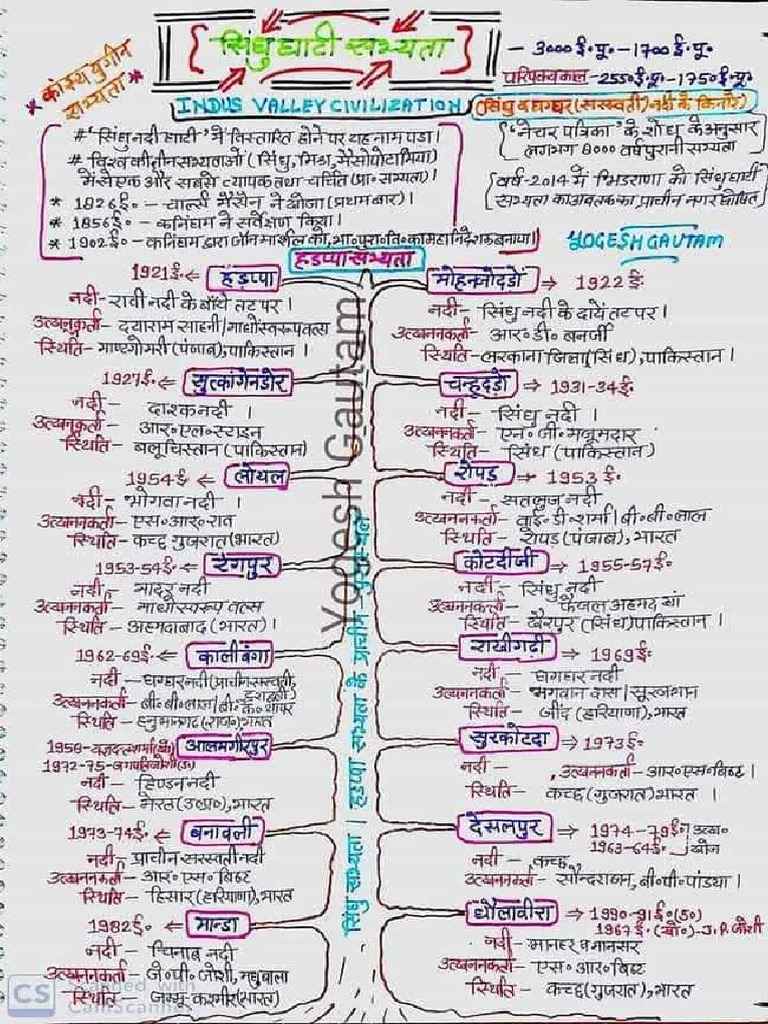 सिंधु घाटी सभ्यता
* कांस्य युगीन सभ्यता *
- 3000 ई॰पू॰ - 1700 ई॰पू॰
परिपक्वकाल - 2550 ई॰पू॰ - 1750 ई॰पू॰
INDUS VALLEY CIVILIZATION
(सिंधु व घग्घर (सरस्वती) नदी के किनारे)
# 'सिंधु नदी घाटी' में विस्तारित होने पर यह नाम पड़ा।
# विश्व की तीन सभ्यताओं (सिंधु, मिस्र, मेसोपोटामिया)
में से एक और सबसे व्यापक तथा चर्चित (प्रा॰ सभ्यता)।
* 1826 ई॰ - चार्ल्स मैसेन ने खोजा (प्रथम बार)।
* 1856 ई॰ - कनिंघम ने सर्वेक्षण किया।
* 1902 ई॰ - कनिंघम द्वारा जॉन मार्शल को, भा॰ पुरा॰ वि॰ का महानिदेशक बनाया।
'नेचर पत्रिका' के शोध के अनुसार
लगभग 8000 वर्ष पुरानी सभ्यता
वर्ष-2014 में भिडराणा को सिंधु घाटी
सभ्यता का अबतक का प्राचीन नगर घोषित
YOGESH GAUTAM
हडप्पा सभ्यता
1921 ई॰ ← हडप्पा
नदी - रावी नदी के बाँये तट पर।
उत्खननकर्ता - दयाराम साहनी / माधोस्वरूप वत्स
स्थिति - माण्टगोमरी (पंजाब), पाकिस्तान।
मोहनजोदड़ो → 1922 ई॰
नदी - सिंधु नदी के दायें तट पर।
उत्खननकर्ता - आर॰ डी॰ बनर्जी
स्थिति - लरकाना जिला (सिंध), पाकिस्तान।
1927 ई॰ ← सुत्कांगेनडोर
नदी - दाश्क नदी।
उत्खननकर्ता - आर॰ एल॰ स्टाइन
स्थिति - बलूचिस्तान (पाकिस्तान)
चन्हूदड़ो → 1931-34 ई॰
नदी - सिंधु नदी।
उत्खननकर्ता - एन॰ जी॰ मजूमदार
स्थिति - सिंध (पाकिस्तान)
1954 ई॰ ← लोथल
नदी - भोगवा नदी।
उत्खननकर्ता - एस॰ आर॰ राव
स्थिति - कच्छ गुजरात (भारत)
रोपड़ → 1953 ई॰
नदी - सतलुज नदी
उत्खननकर्ता - वाई॰ डी॰ शर्मा / बी॰ बी॰ लाल
स्थिति - रोपड़ (पंजाब), भारत
1953-54 ई॰ ← रंगपुर
नदी - मादर नदी
उत्खननकर्ता - माधोस्वरूप वत्स
स्थिति - अहमदाबाद (भारत)।
कोटदीजी → 1955-57 ई॰
नदी - सिंधु नदी
उत्खननकर्ता - फजल अहमद खां
स्थिति - खैरपुर (सिंध) पाकिस्तान।
1962-69 ई॰ ← कालीबंगा
नदी - घग्घर नदी (प्राचीन सरस्वती,
उत्खननकर्ता - बी॰ बी॰ लाल / बी॰ के॰ थापर
स्थिति - हनुमानगढ़ (राज॰) भारत
राखीगढ़ी → 1969 ई॰
नदी - घग्घर नदी
उत्खननकर्ता - भगवान दास / सूरजभान
स्थिति - जींद (हरियाणा), भारत
1958 - यज्ञदत्त शर्मा आलमगीरपुर
1972-75 - जगपति जोशी
नदी - हिण्डन नदी
स्थिति - मेरठ (उ॰प्र॰), भारत
सुरकोटदा → 1973 ई॰
नदी - , उत्खननकर्ता - आर॰ एस॰ बिष्ट।
स्थिति - कच्छ (गुजरात) भारत।
1973-74 ई॰ ← बनावली
नदी - प्राचीन सरस्वती नदी
उत्खननकर्ता - आर॰ एस॰ बिष्ट
स्थिति - हिसार (हरियाणा), भारत
देसलपुर → 1974-79 ई॰ उत्ख॰
1963-64 ई॰ खोज
नदी - कच्छ
उत्खननकर्ता - सौन्दराजन, बी॰ पी॰ पांड्या।
1982 ई॰ ← मान्डा
नदी - चिनाब नदी
उत्खननकर्ता - जे॰ पी॰ जोशी, मधुबाला
स्थिति - जम्मू कश्मीर (भारत)
धौलावीरा → 1990-91 ई॰ (उ॰)
1967 ई॰ (खो॰) - J. P. जोशी
नदी - मानहर व मानसर
उत्खननकर्ता - एस॰ आर॰ बिष्ट
स्थिति - कच्छ (गुजरात), भारत
सिंधु सभ्यता / हडप्पा सभ्यता के प्राचीन
Yogesh Gautam
CS Scanned with CamScanner